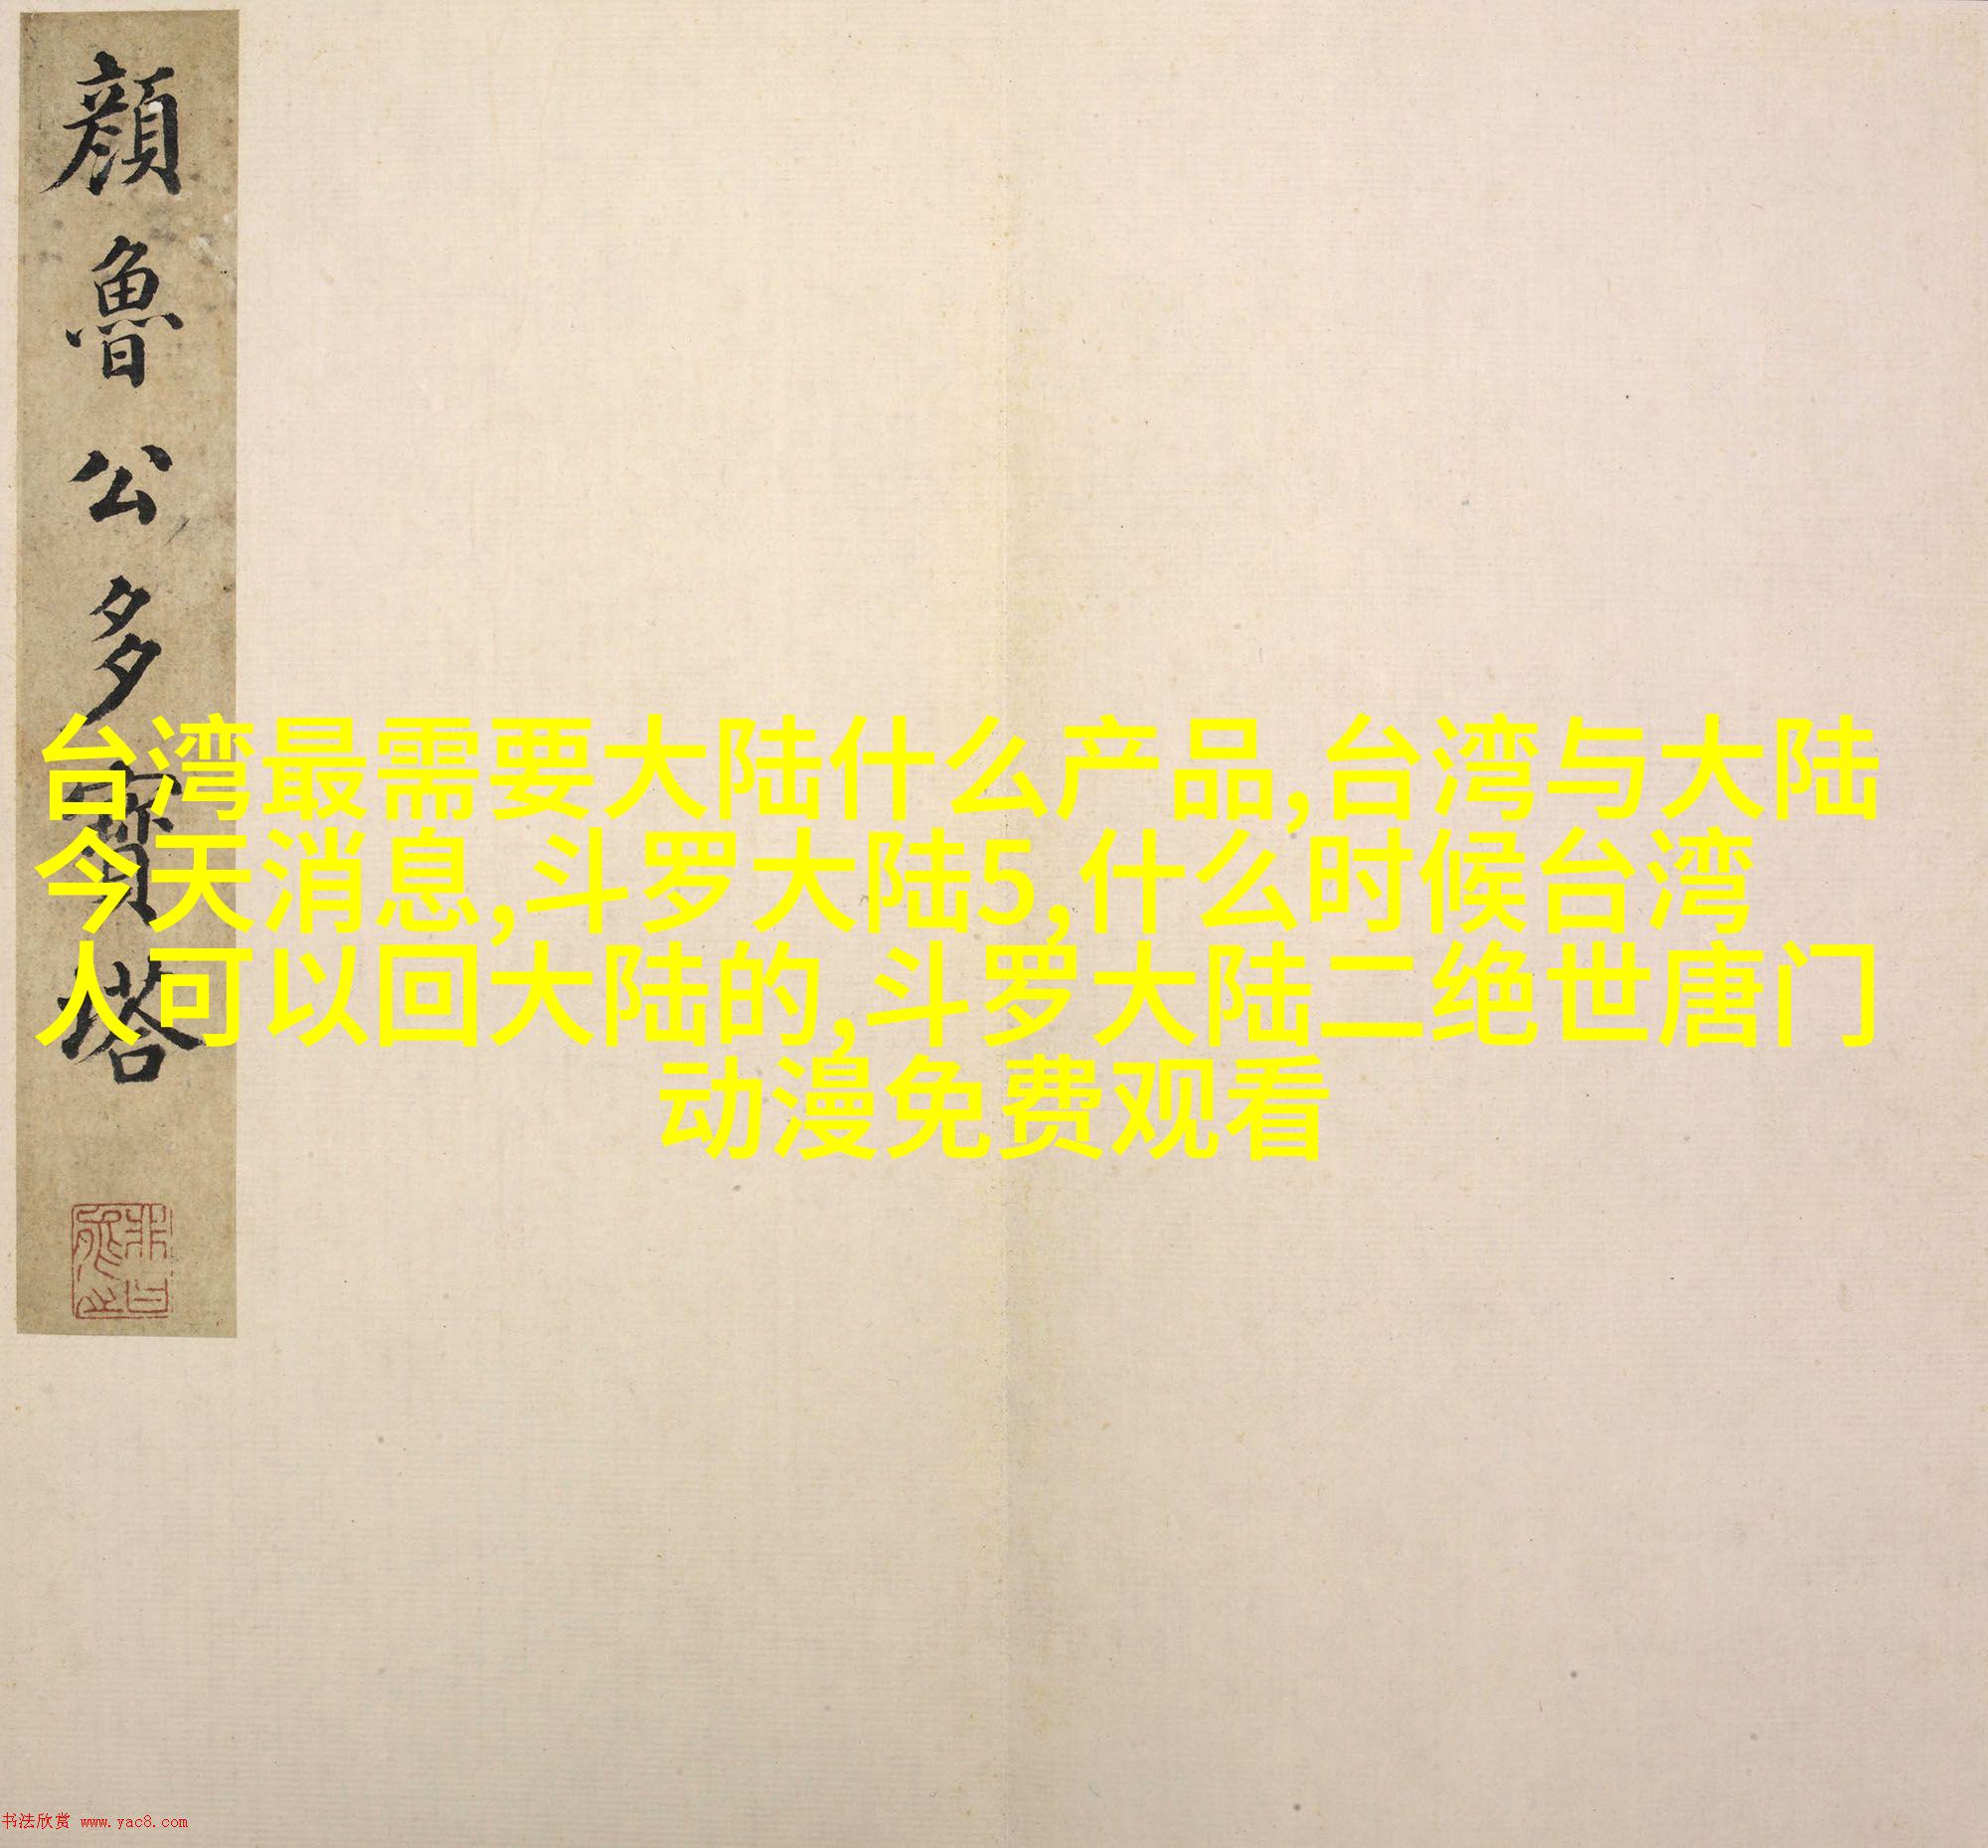 顔魯公多寶塔
台湾最需要大陆什么产品,台湾与大陆
今天消息,斗罗大陆5,什么时候台湾
人可以回大陆的,斗罗大陆二绝世唐门
动漫免费观看
书法欣赏 www.yac8.com